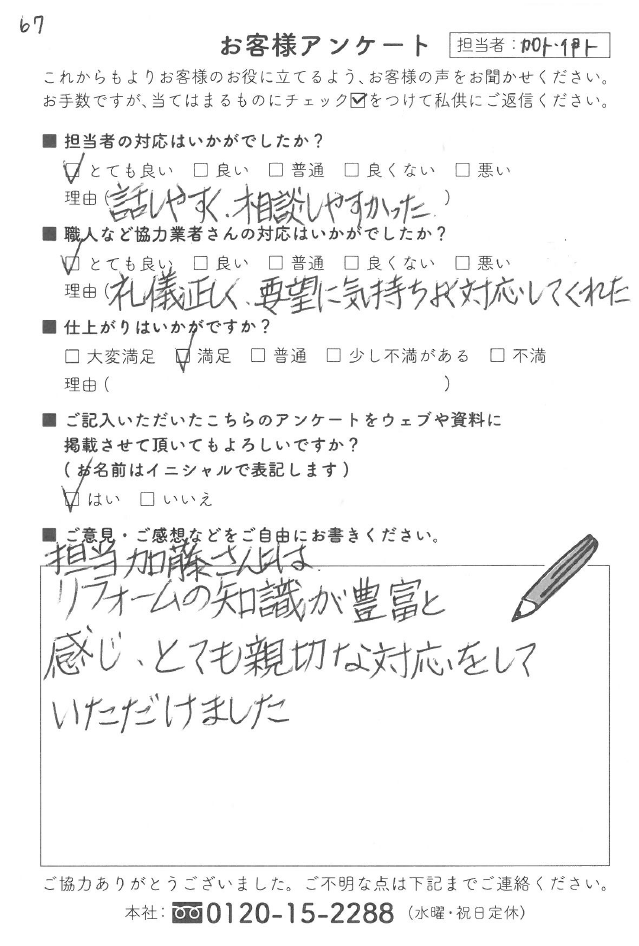 67
お客様アンケート
担当者：加ト・伊ト
これからもよりお客様のお役に立てるよう、お客様の声をお聞かせください。
お手数ですが、当てはまるものにチェック☑をつけて私供にご返信ください。
■ 担当者の対応はいかがでしたか？
☑ とても良い □ 良い □ 普通 □ 良くない □ 悪い
理由（話しやすく、相談しやすかった。）
■ 職人など協力業者さんの対応はいかがでしたか？
☑ とても良い □ 良い □ 普通 □ 良くない □ 悪い
理由（礼儀正しく、要望に気持ちよく対応してくれた
■ 仕上がりはいかがですか？
□ 大変満足 ☑ 満足 □ 普通 □ 少し不満がある □ 不満
理由（ ）
■ ご記入いただいたこちらのアンケートをウェブや資料に
掲載させて頂いてもよろしいですか？
（お名前はイニシャルで表記します）
☑ はい □ いいえ
■ ご意見・ご感想などをご自由にお書きください。
担当加藤さんは
リフォームの知識が豊富と
感じ、とても親切な対応をして
いただけました
ご協力ありがとうございました。ご不明な点は下記までご連絡ください。
本社：0120-15-2288（水曜・祝日定休）